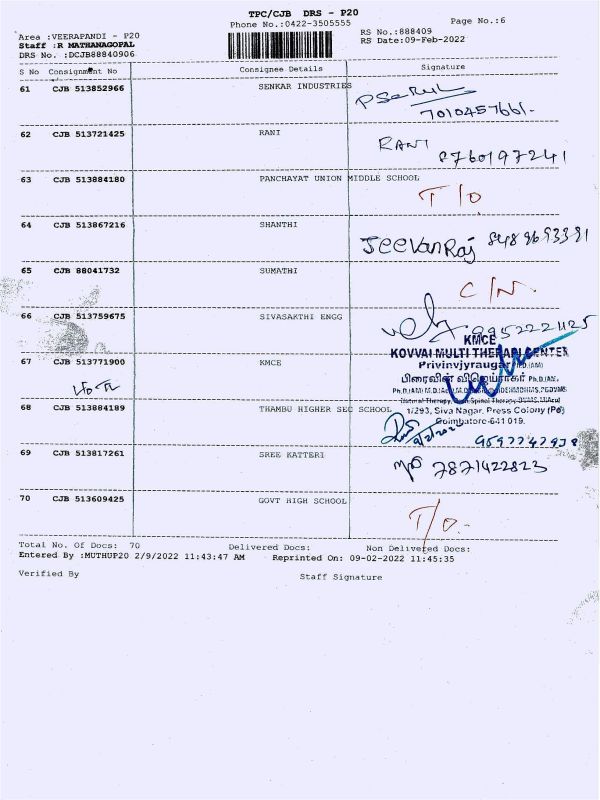 TPC/CJB DRS - P20
Phone No.:0422-3505555
Page No.:6
Area :VEERAPANDI - P20
RS No.:888409
Staff :R MATHANAGOPAL
RS Date:09-Feb-2022
DRS No. :DCJB88840906
S No Consignment No Consignee Details Signature
61 CJB 513852966 SENKAR INDUSTRIES
7010457661-
62 CJB 513721425 RANI RANI
8760197241
63 CJB 513884180 PANCHAYAT UNION MIDDLE SCHOOL
T/O
64 CJB 513867216 SHANTHI
JEEVANRAJ 8489693391
65 CJB 88041732 SUMATHI
C/N.
66 CJB 513759675 SIVASAKTHI ENGG
9952221125
KMCE
KOVVAI MULTI THERAPI CENTER
67 CJB 513771900 KMCE
Privinvjyraugar
1/293, Siva Nagar, Press Colony (Po)
68 CJB 513884189 THAMBU HIGHER SEC SCHOOL
Coimbatore-641 019.
69 CJB 513817261 SREE KATTERI
7871422823
70 CJB 513609425 GOVT HIGH SCHOOL
T/O.
Total No. Of Docs: 70 Delivered Docs: Non Delivered Docs:
Entered By :MUTHUP20 2/9/2022 11:43:47 AM Reprinted On: 09-02-2022 11:45:35
Verified By Staff Signature